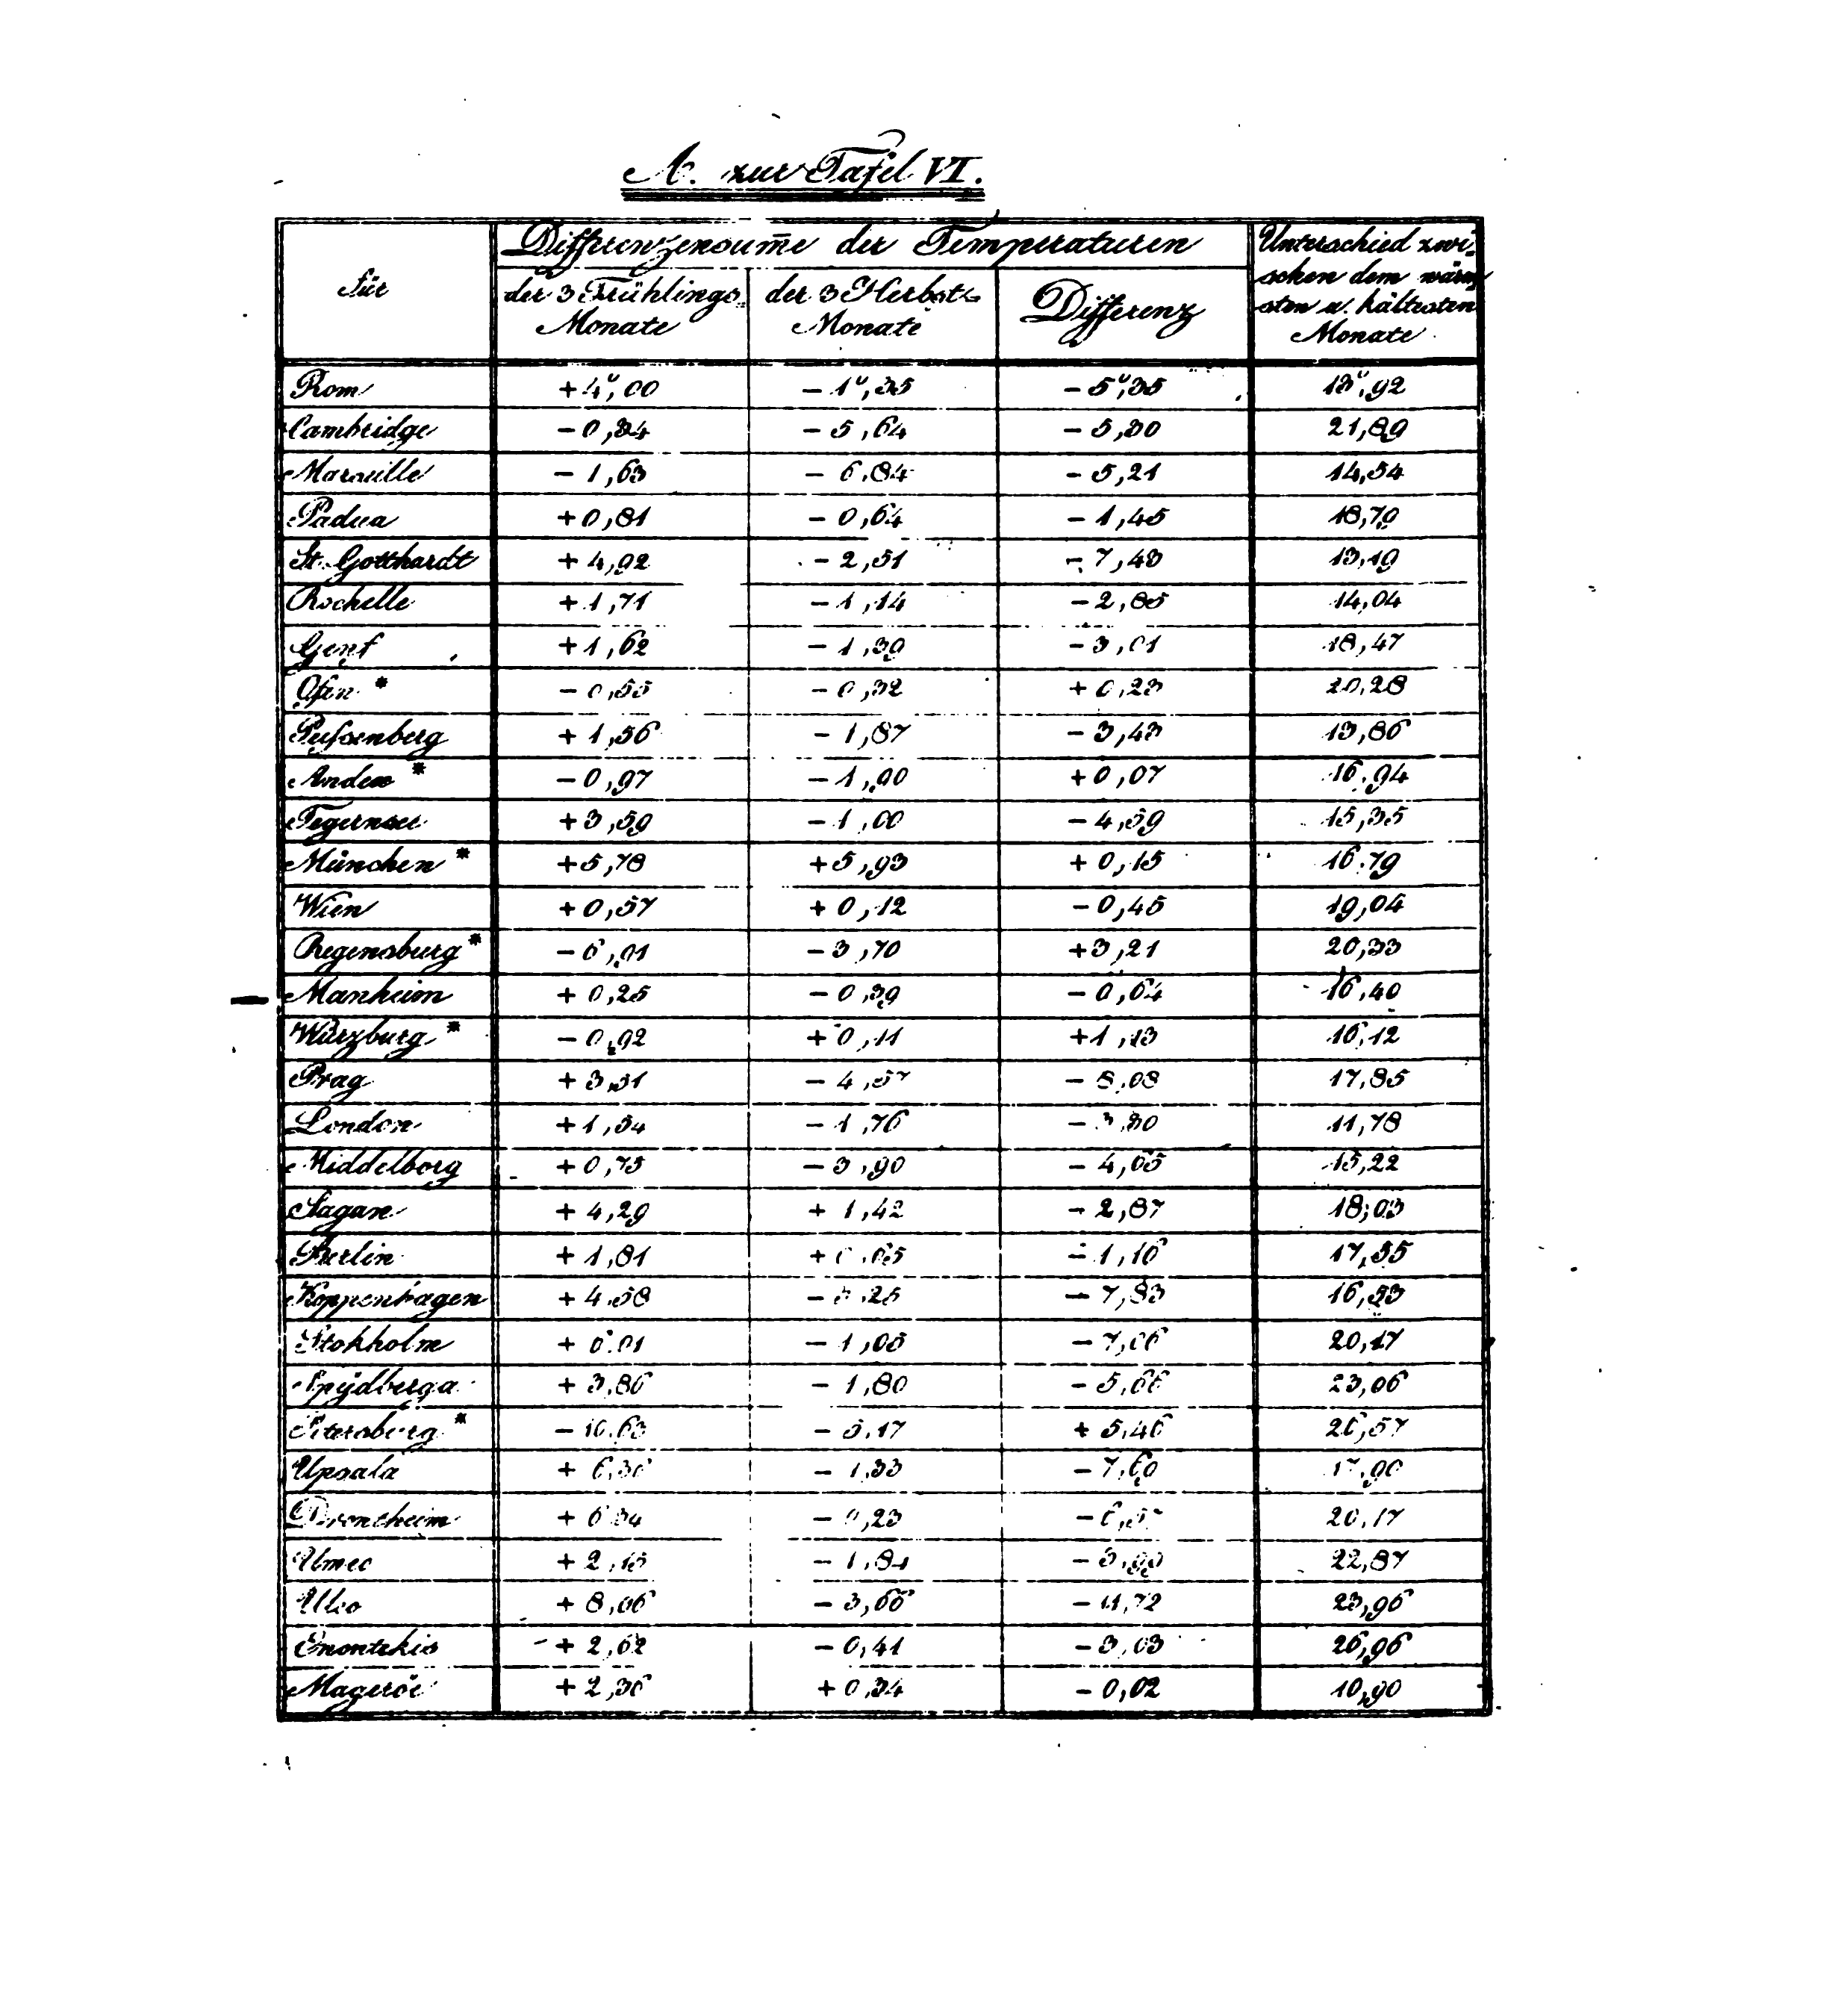 A. zur Tafel VI.
für
Differenzensum̄e der Temperaturen
Unterschied zwi-
schen dem wärm-
sten u. kältesten
Monate
der 3 Frühlings-
Monate
der 3 Herbst-
Monate
Differenz
Rom +4°,00 -1°,35 -5°,35 13°,92
Cambridge -0,34 -5,64 -5,30 21,89
Marseille -1,63 -6,84 -5,21 14,54
Padua +0,81 -0,64 -1,45 18,79
St. Gotthardt +4,92 -2,51 -7,43 13,19
Rochelle +1,71 -1,14 -2,85 14,04
Genf +1,62 -1,39 -3,01 18,47
Ofen * -0,55 -0,32 +0,23 20,28
Peissenberg +1,56 -1,87 -3,43 13,86
Andex * -0,97 -1,90 +0,07 16,94
Tegernsee +3,59 -1,00 -4,59 15,35
München * +5,78 +5,93 +0,15 16.79
Wien +0,57 +0,12 -0,45 19,04
Regensburg * -6,91 -3,70 +3,21 20,33
Manheim +0,25 -0,39 -0,64 16,40
Würzburg * -0,92 +0,11 +1,13 16,12
Prag +3,51 -4,57 -8,08 17,85
London +1,54 -1,76 -3,30 11,78
Middelborg +0,75 -3,90 -4,65 15,22
Sagan +4,29 +1,42 -2,87 18,03
Berlin +1,81 +0,65 -1,16 17,35
Koppenhagen +4,58 -3,25 -7,83 16,53
Stokholm +6,01 -1,05 -7,06 20,17
Spÿdberga +3,86 -1,80 -5,66 23,06
Petersburg * -10,63 -5,17 +5,46 26,57
Upsala +6,36 -1,33 -7,69 17,90
Drontheim +6,34 -0,23 20,17
Umeo +2,15 -1,84 22,87
Uleo +8,06 -3,66 -11,72 23,96
Enontekis +2,62 -0,41 -3,03 26,96
Mageröe +2,36 +0,34 -0,02 10,90